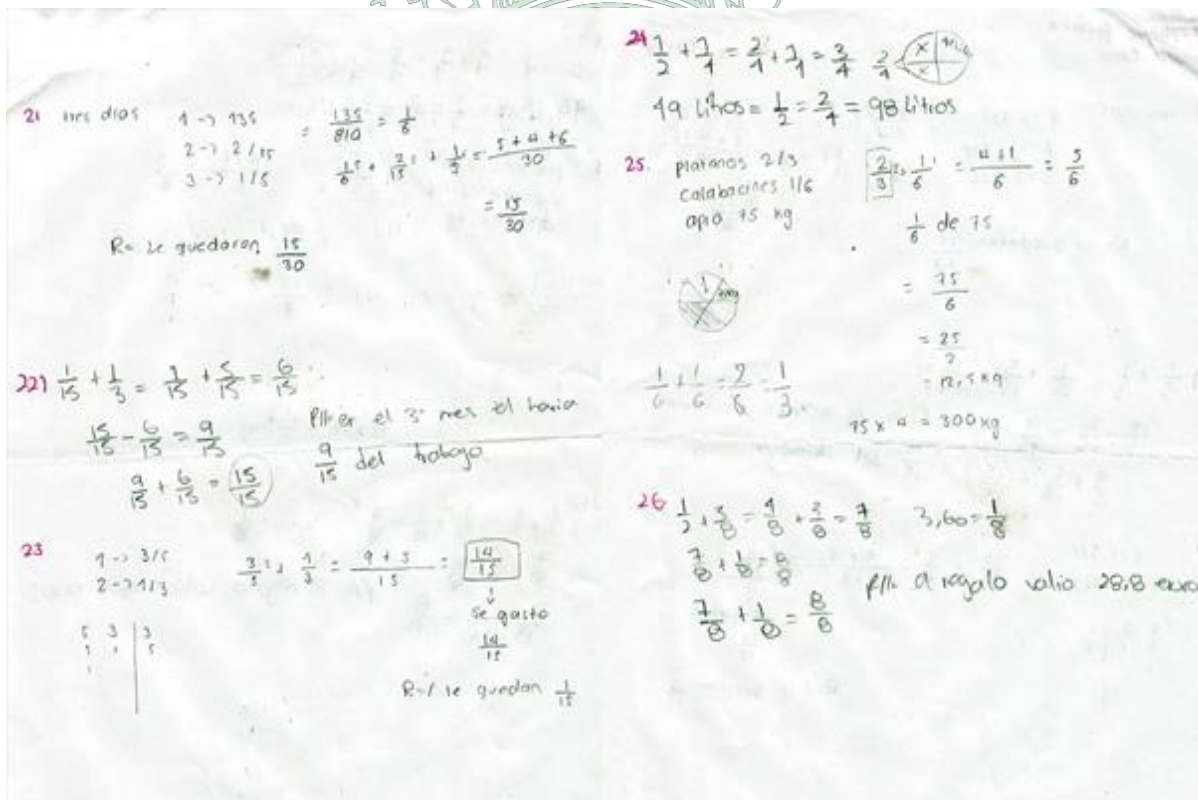 21 tres dias
1 -> 135
2 -> 2/15
3 -> 1/5
= 135/810 = 1/6
1/6 + 2/15 + 1/5 = 5 + 4 + 6/30
= 15/30
R= Le quedaron 15/30
22) 1/15 + 1/3 = 1/15 + 5/15 = 6/15
15/15 - 6/15 = 9/15
9/15 + 6/15 = 15/15
el 3º mes el haria
9/15 del trabajo
23
1 -> 3/5
2 -> 1/3
3/5 + 1/3 = 9 + 5/15 = 14/15
se gasto
14/15
5 3 | 3
R=/ le quedan 1/15
24 1/2 + 1/4 = 2/4 + 1/4 = 3/4 2/4
49 Litros = 1/2 = 2/4 = 98 Litros
25. platanos 2/3
calabacines 1/6
apio 75 kg
2/3 + 1/6 = 4 + 1/6 = 5/6
1/6 de 75
= 75/6
= 25/2
= 12,5 kg
1/6 + 1/6 = 2/6 = 1/3
75 x 4 = 300 kg
26 1/2 + 3/8 = 4/8 + 3/8 = 7/8 3,60 = 1/8
7/8 + 1/8 = 8/8
7/8 + 1/8 = 8/8
regalo valio 28,8 euro